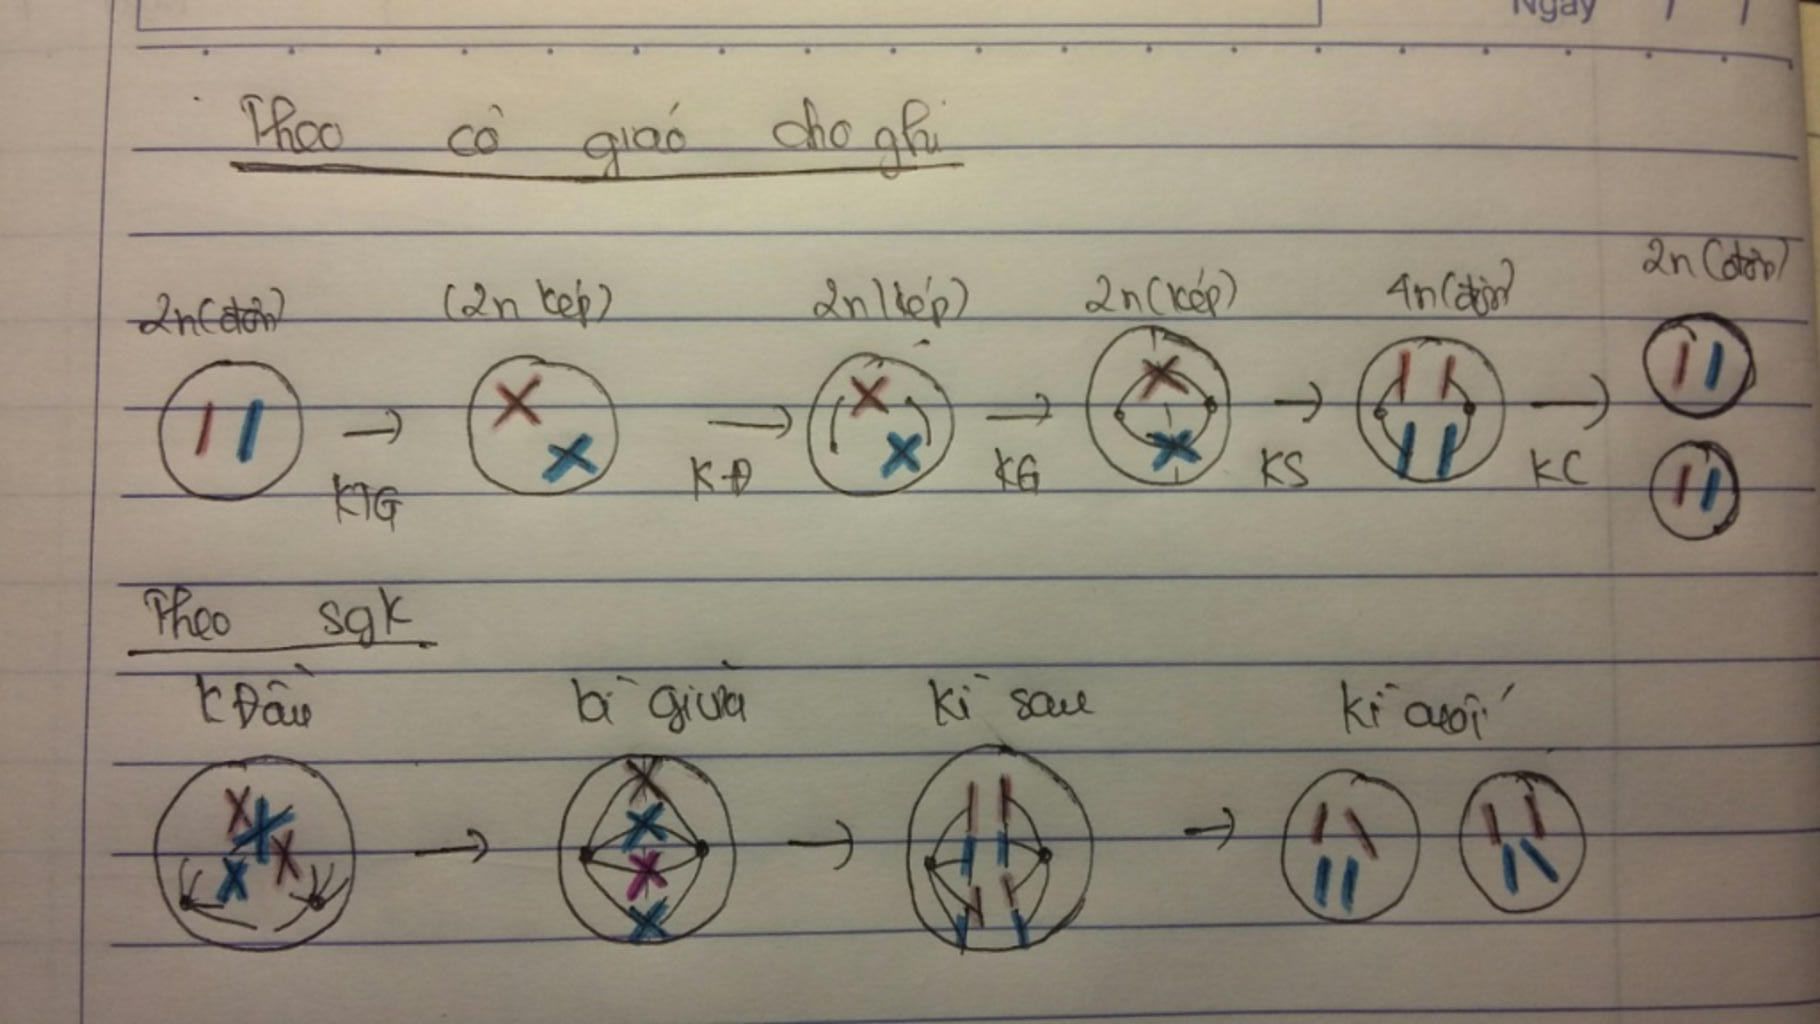 Ngày / /
Theo cô giáo cho ghi
2n(đơn) (2n kép) 2n(kép) 2n(kép) 4n(đơn) 2n(đơn)
KTG KĐ KG KS KC
Theo sgk
kĐầu kì giữa kì sau kì cuối